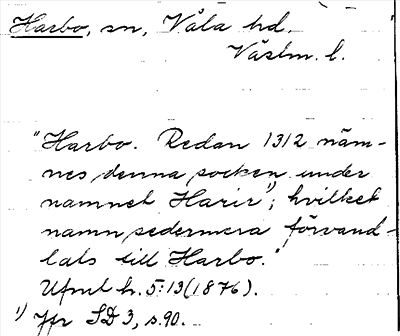 Harbo, sn, Våla hd.
Västm. l.
"Harbo. Redan 1312 näm-
nes denna socken under
namnet Harir¹⁾; hvilket
namn sedermera förvand-
lats till Harbo."
Ufmt h. 5:13 (1876).
¹⁾ Jfr SD 3, s. 90.